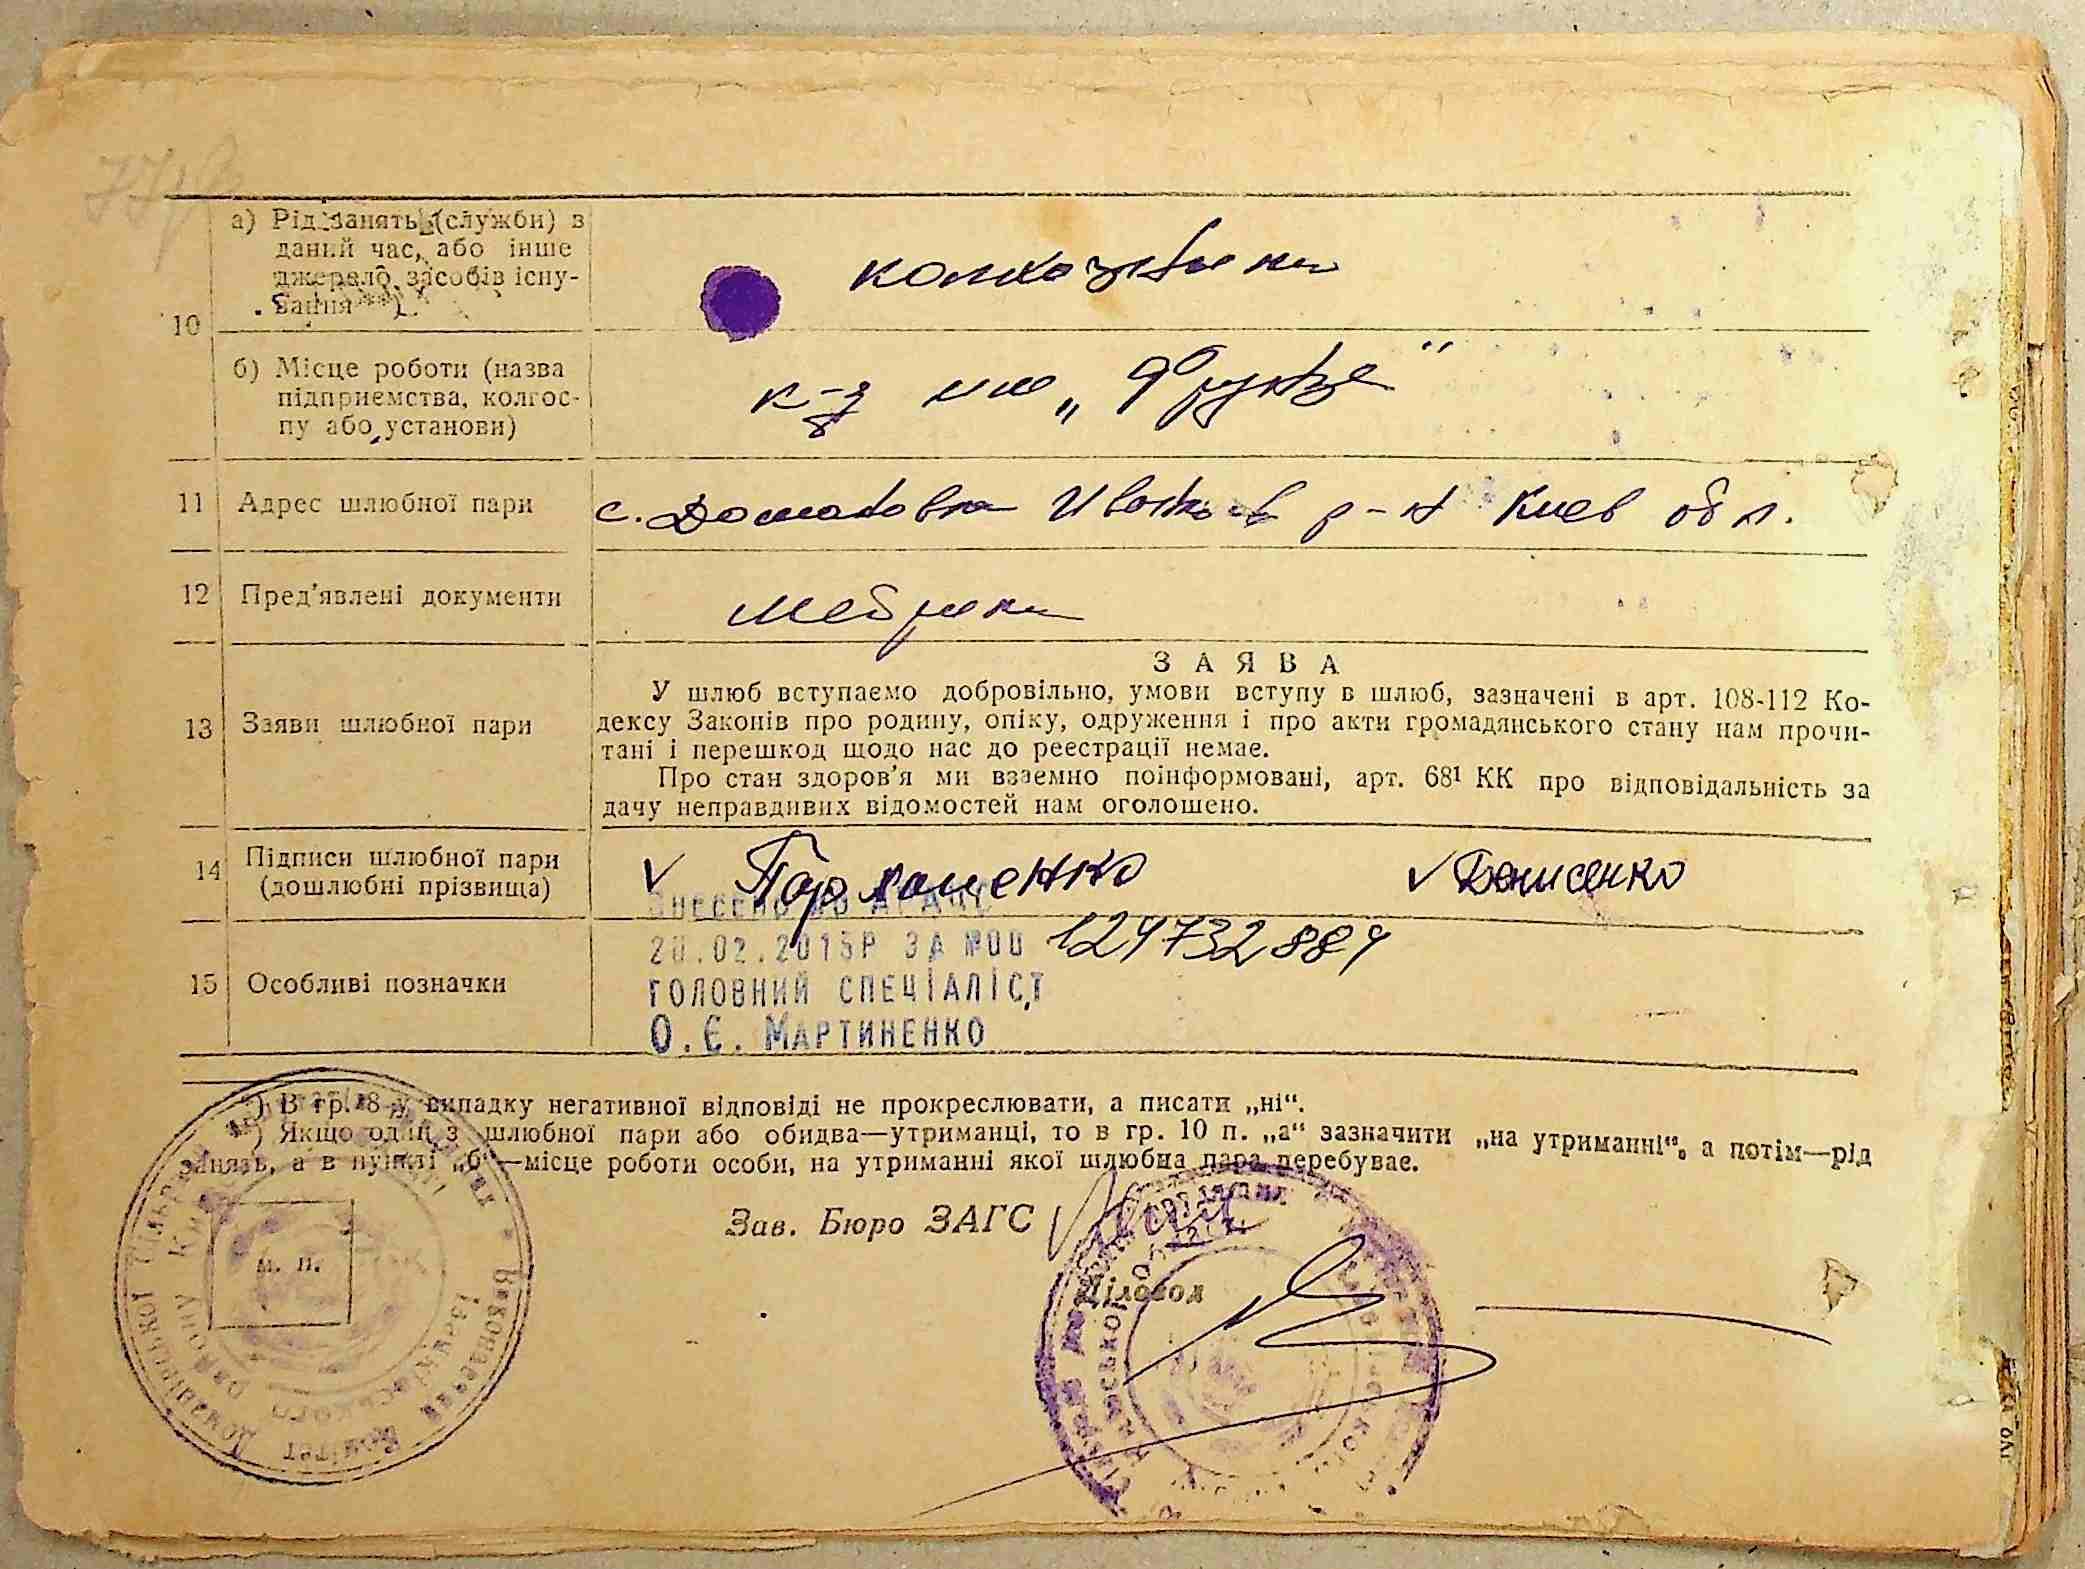 а) Рід занять (служби) в
даний час, або інше
джерело засобів існу-
вання
10
колхозники
б) Місце роботи (назва
підприємства, колгос-
пу або установи)
к-з им „Фрунзе“
11 Адрес шлюбної пари
с. Домановка Иванков р-н Киев обл.
12 Пред'явлені документи
метрики
13 Заяви шлюбної пари
ЗАЯВА
У шлюб вступаємо добровільно, умови вступу в шлюб, зазначені в арт. 108-112 Ко-
дексу Законів про родину, опіку, одруження і про акти громадянського стану нам прочи-
тані і перешкод щодо нас до реєстрації немає.
Про стан здоров'я ми взаємно поінформовані, арт. 68¹ КК про відповідальність за
дачу неправдивих відомостей нам оголошено.
14 Підписи шлюбної пари
(дошлюбні прізвища)
√ Пархоменко √ Денисенко
ВНЕСЕНО ДО ДРАЦС
20.02.2015Р ЗА №00 129732884
15 Особливі позначки
ГОЛОВНИЙ СПЕЦІАЛІСТ
О.Є. МАРТИНЕНКО
) В гр. 8 у випадку негативної відповіді не прокреслювати, а писати „ні“.
) Якщо один з шлюбної пари або обидва—утриманці, то в гр. 10 п. „а“ зазначити „на утриманні“, а потім—рід
занять, а в пункті „б“—місце роботи особи, на утриманні якої шлюбна пара перебуває.
Зав. Бюро ЗАГС
м. п.
Діловод
Виконавчий Комітет